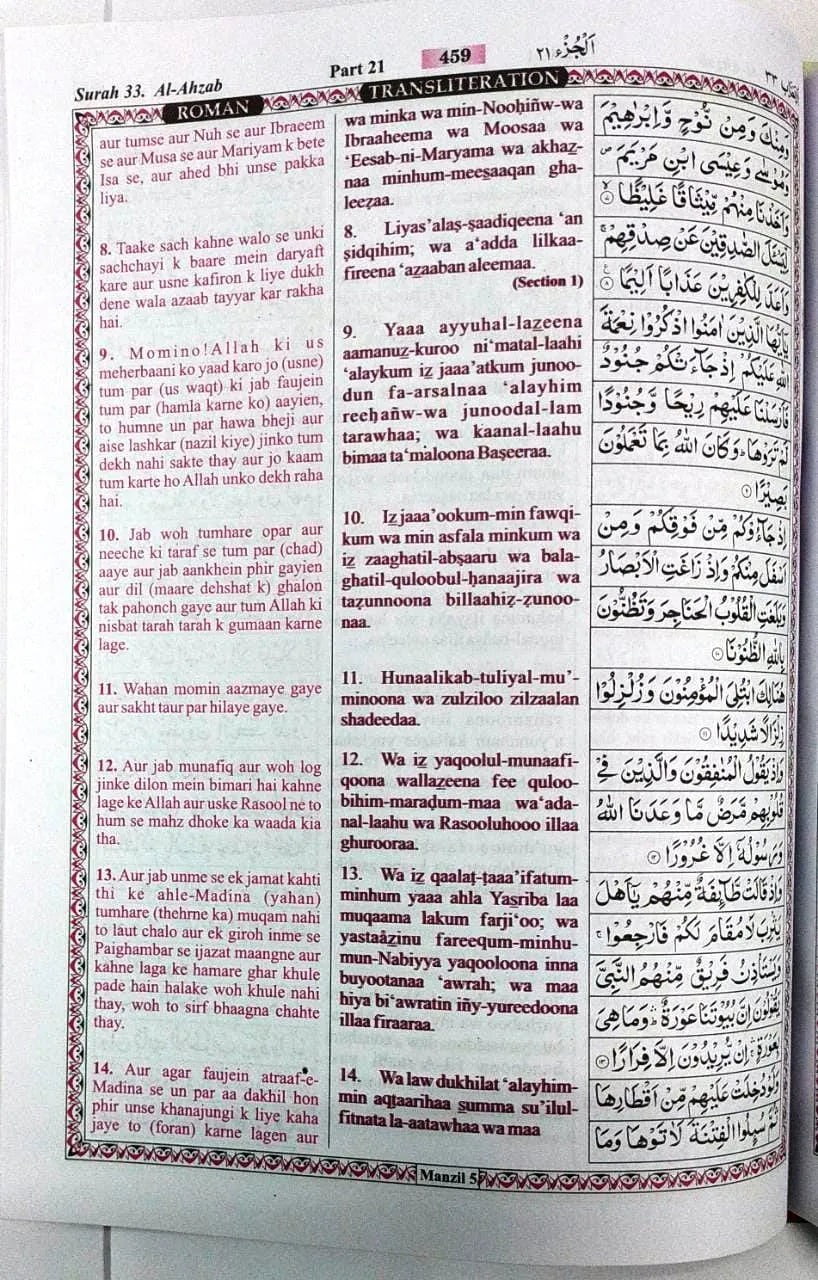 Surah 33. Al-Ahzab
Part 21
459
اَلْجُزْء ٢١
ROMAN
TRANSLITERATION
aur tumse aur Nuh se aur Ibraeem
se aur Musa se aur Mariyam k bete
Isa se, aur ahed bhi unse pakka
liya.
8. Taake sach kahne walo se unki
sachchayi k baare mein daryaft
kare aur usne kafiron k liye dukh
dene wala azaab tayyar kar rakha
hai.
9. Momino!Allah ki us
meherbaani ko yaad karo jo (usne)
tum par (us waqt) ki jab faujein
tum par (hamla karne ko) aayien,
to humne un par hawa bheji aur
aise lashkar (nazil kiye) jinko tum
dekh nahi sakte thay aur jo kaam
tum karte ho Allah unko dekh raha
hai.
10. Jab woh tumhare opar aur
neeche ki taraf se tum par (chad)
aaye aur jab aankhein phir gayien
aur dil (maare dehshat k) ghalon
tak pahonch gaye aur tum Allah ki
nisbat tarah tarah k gumaan karne
lage.
11. Wahan momin aazmaye gaye
aur sakht taur par hilaye gaye.
12. Aur jab munafiq aur woh log
jinke dilon mein bimari hai kahne
lage ke Allah aur uske Rasool ne to
hum se mahz dhoke ka waada kia
tha.
13. Aur jab unme se ek jamat kahti
thi ke ahle-Madina (yahan)
tumhare (thehrne ka) muqam nahi
to laut chalo aur ek giroh inme se
Paighambar se ijazat maangne aur
kahne laga ke hamare ghar khule
pade hain halake woh khule nahi
thay, woh to sirf bhaagna chahte
thay.
14. Aur agar faujein atraaf-e-
Madina se un par aa dakhil hon
phir unse khanajungi k liye kaha
jaye to (foran) karne lagen aur
wa minka wa min-Nooḥiñw-wa
Ibraaheema wa Moosaa wa
‘Eesab-ni-Maryama wa akhaz̲-
naa minhum-meesaaqan gha-
leeẓaa.
8. Liyas’alaṣ-ṣaadiqeena ‘an
ṣidqihim; wa a‘adda lilkaa-
fireena ‘az̲aaban aleemaa.
(Section 1)
9. Yaaa ayyuhal-laz̲eena
aamanuz̲-kuroo ni‘matal-laahi
‘alaykum iz̲ jaaa’atkum junoo-
dun fa-arsalnaa ‘alayhim
reeḥañw-wa junoodal-lam
tarawhaa; wa kaanal-laahu
bimaa ta‘maloona Baṣeeraa.
10. Iz̲ jaaa’ookum-min fawqi-
kum wa min asfala minkum wa
iz̲ zaaghatil-abṣaaru wa bala-
ghatil-quloobul-ḥanaajira wa
taẓunnoona billaahiẓ-ẓunoo-
naa.
11. Hunaalikab-tuliyal-mu’-
minoona wa zulziloo zilzaalan
shadeedaa.
12. Wa iz̲ yaqoolul-munaafi-
qoona wallaz̲eena fee quloo-
bihim-maraḍum-maa wa‘ada-
nal-laahu wa Rasooluhooo illaa
ghurooraa.
13. Wa iz̲ qaalaṭ-ṭaaa’ifatum-
minhum yaaa ahla Yas̲riba laa
muqaama lakum farji‘oo; wa
yastaâz̲inu fareequm-minhu-
mun-Nabiyya yaqooloona inna
buyootanaa ‘awrah; wa maa
hiya bi‘awratin iñy-yureedoona
illaa firaaraa.
14. Wa law dukhilat ‘alayhim-
min aqtaarihaa s̲umma su’ilul-
fitnata la-aatawhaa wa maa
وَمِنْكَ وَمِنْ نُّوْحٍ وَّاِبْرٰهِيْمَ
وَمُوْسٰى وَعِيْسَى ابْنِ مَرْيَمَ ۖ
وَاَخَذْنَا مِنْهُمْ مِّيْثَاقًا غَلِيْظًا ۙ٧
لِّيَسْـَٔلَ الصّٰدِقِيْنَ عَنْ صِدْقِهِمْ ۚ
وَاَعَدَّ لِلْكٰفِرِيْنَ عَذَابًا اَلِيْمًا ٨
يٰٓاَيُّهَا الَّذِيْنَ اٰمَنُوا اذْكُرُوْا نِعْمَةَ
اللّٰهِ عَلَيْكُمْ اِذْ جَآءَتْكُمْ جُنُوْدٌ
فَاَرْسَلْنَا عَلَيْهِمْ رِيْحًا وَّجُنُوْدًا
لَّمْ تَرَوْهَا ؕ وَكَانَ اللّٰهُ بِمَا تَعْمَلُوْنَ
بَصِيْرًا ٩
اِذْ جَآءُوْكُمْ مِّنْ فَوْقِكُمْ وَمِنْ
اَسْفَلَ مِنْكُمْ وَاِذْ زَاغَتِ الْاَبْصَارُ
وَبَلَغَتِ الْقُلُوْبُ الْحَنَاجِرَ وَتَظُنُّوْنَ
بِاللّٰهِ الظُّنُوْنَا ١٠
هُنَالِكَ ابْتُلِىَ الْمُؤْمِنُوْنَ وَزُلْزِلُوْا
زِلْزَالًا شَدِيْدًا ١١
وَاِذْ يَقُوْلُ الْمُنٰفِقُوْنَ وَالَّذِيْنَ فِيْ
قُلُوْبِهِمْ مَّرَضٌ مَّا وَعَدَنَا اللّٰهُ
وَرَسُوْلُهٗٓ اِلَّا غُرُوْرًا ١٢
وَاِذْ قَالَتْ طَّآئِفَةٌ مِّنْهُمْ يٰٓاَهْلَ
يَثْرِبَ لَا مُقَامَ لَكُمْ فَارْجِعُوْا ۚ
وَيَسْتَاْذِنُ فَرِيْقٌ مِّنْهُمُ النَّبِيَّ
يَقُوْلُوْنَ اِنَّ بُيُوْتَنَا عَوْرَةٌ ۛ وَمَا هِيَ
بِعَوْرَةٍ ۛ اِنْ يُّرِيْدُوْنَ اِلَّا فِرَارًا ١٣
وَلَوْ دُخِلَتْ عَلَيْهِمْ مِّنْ اَقْطَارِهَا
ثُمَّ سُئِلُوا الْفِتْنَةَ لَاٰتَوْهَا وَمَا
Manzil 5